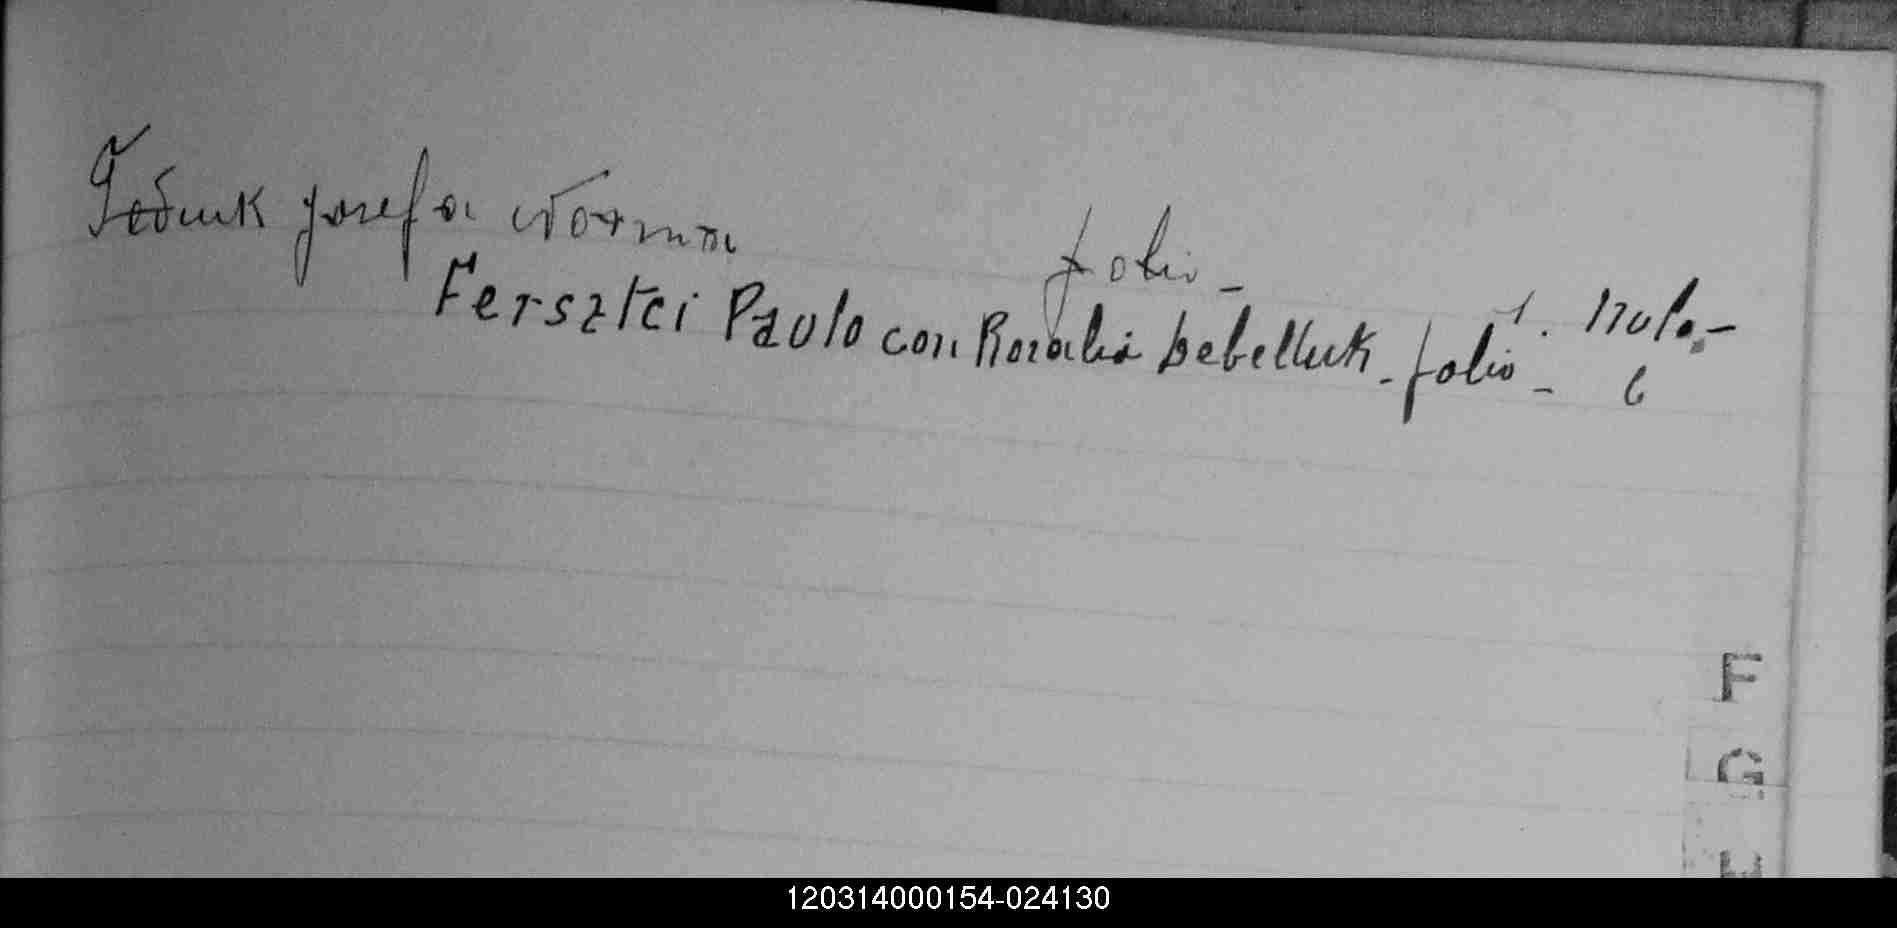 Feduk Josefa Norma folio - 1. Nulo. -
Fersztei Paulo con Rozalia bebelluk - folio - 6
F
G
H
120314000154-024130